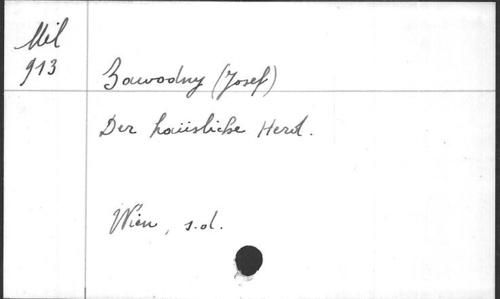 Mil
913
Zawodny (Josef)
Der häusliche Herd.
Wien, s.d.